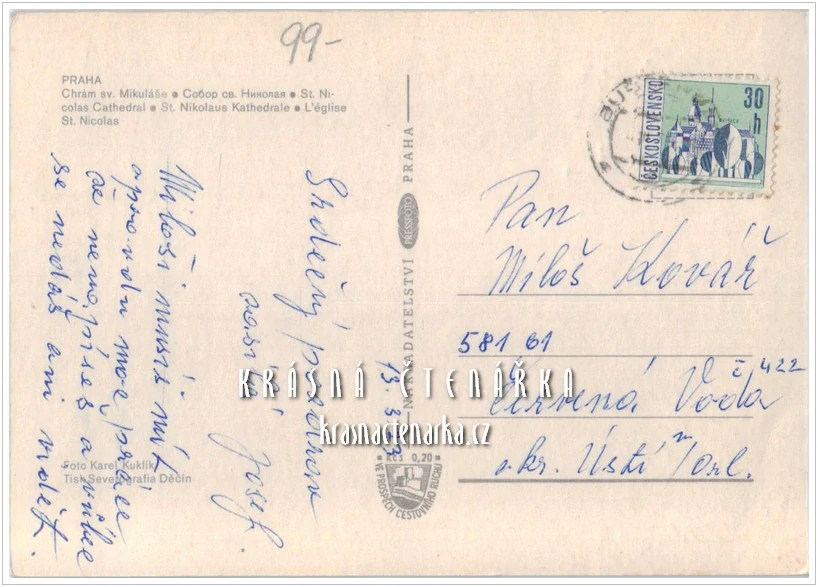 99-
PRAHA
Chrám sv. Mikuláše ● Собор св. Николая ● St. Ni-
colas Cathedral ● St. Nikolaus Kathedrale ● L'église
St. Nicolas
Miloši musíš mít
opravdu moc práce
že nenapíšeš a vůbec
se nedáš ani vidět.
Srdečný pozdrav
zasílá Josef.
NAKLADATELSTVÍ PRESSFOTO PRAHA
ČESKOSLOVENSKO
30 h
KOŠICE
Pan
Miloš Kovář
581 61
č. 422
Červená Voda
okr. Ústí n/Orl.
KRÁSNÁ ČTENÁŘKA
krasnactenarka.cz
Foto Karel Kuklík
Tisk Severografia Děčín
Kčs 0,20
VE PROSPĚCH CESTOVNÍHO RUCHU